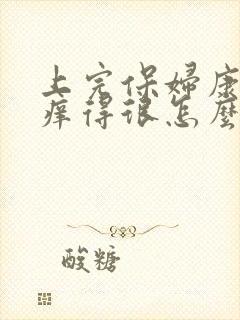 上完保婦康
痒得很怎麼
酸糖